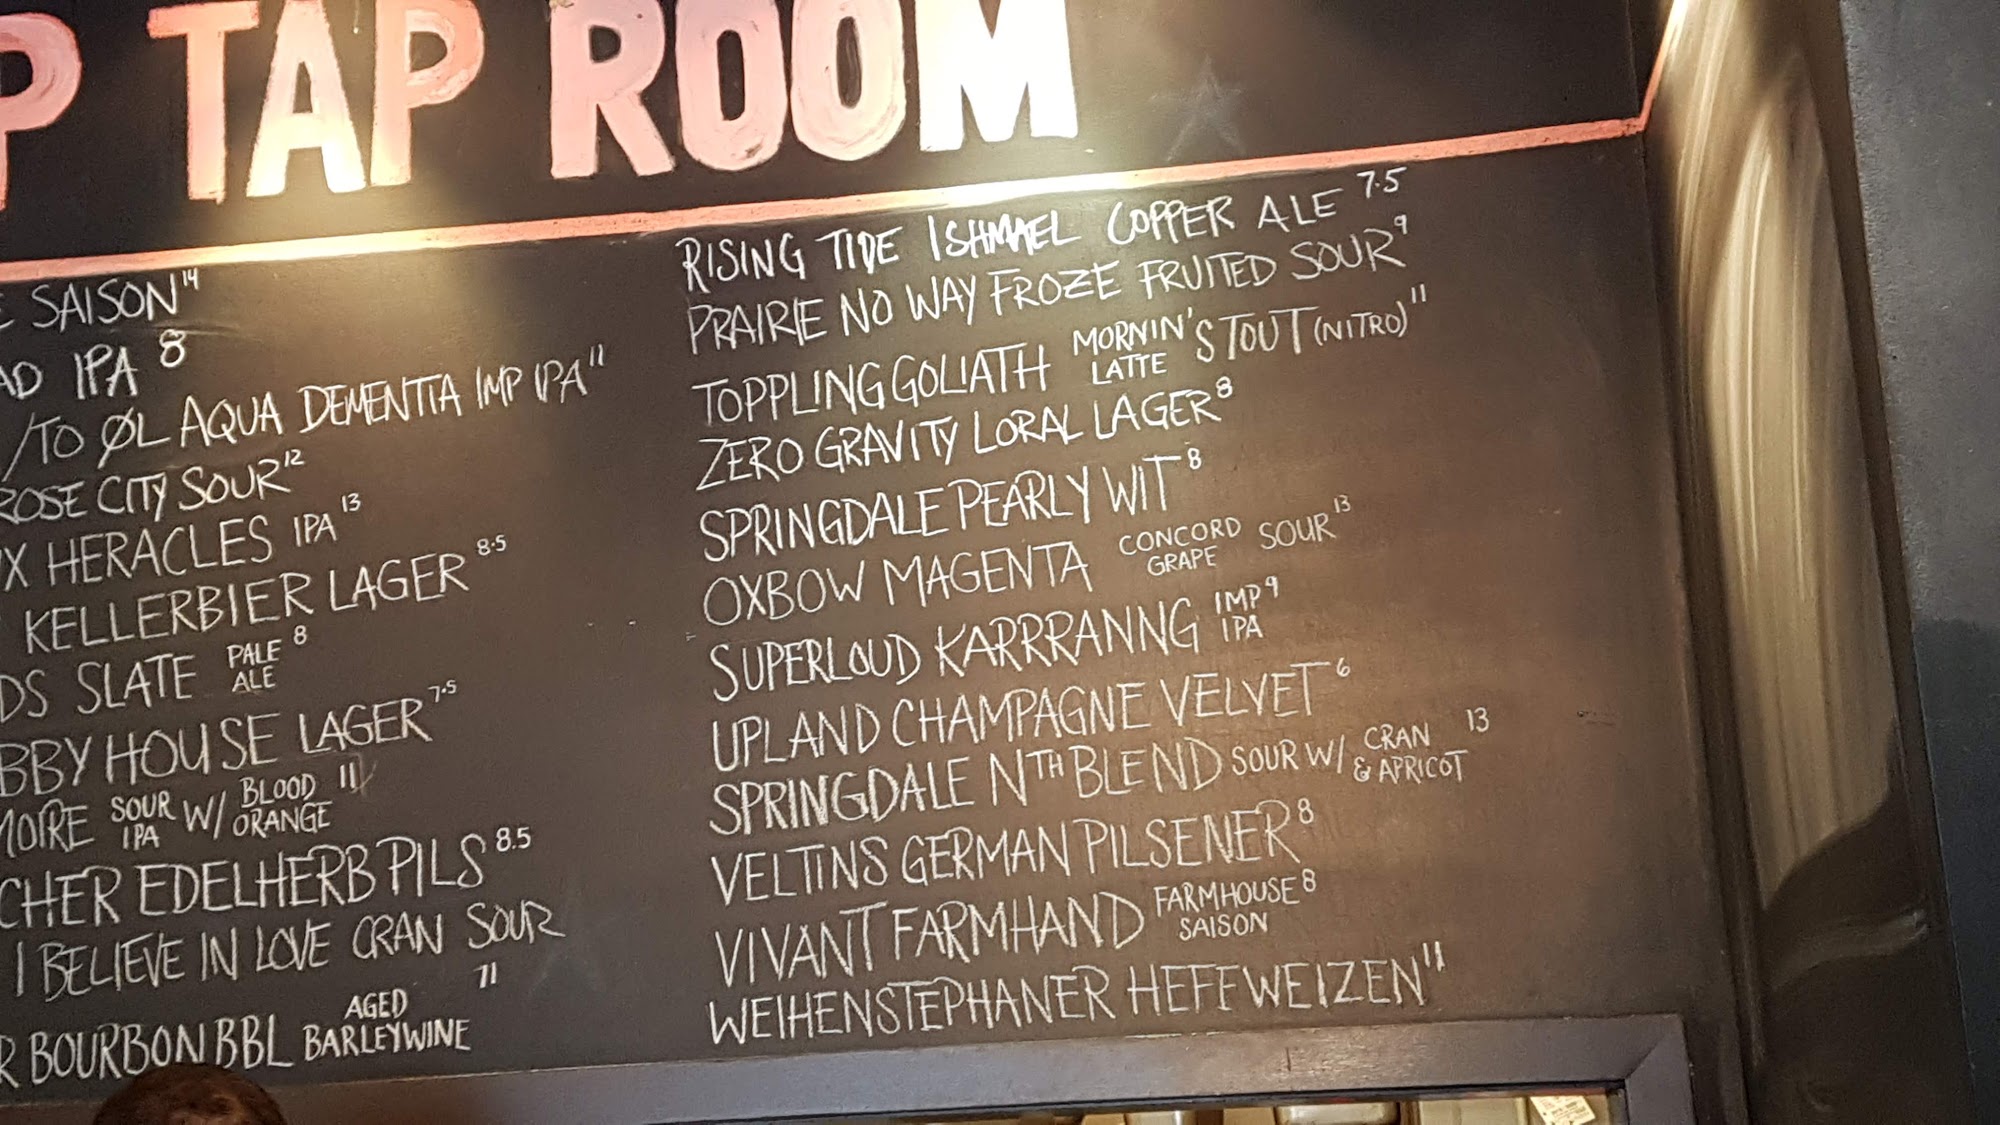 P TAP ROOM
E SAISON 14
AD IPA 8
/TO ØL AQUA DEMENTIA IMP IPA 11
ROSE CITY SOUR 12
X HERACLES IPA 13
KELLERBIER LAGER 8.5
DS SLATE PALE ALE 8
BBY HOUSE LAGER 7.5
MOIRE SOUR IPA W/ BLOOD ORANGE 11
CHER EDELHERB PILS 8.5
I BELIEVE IN LOVE CRAN SOUR 11
R BOURBON BBL AGED BARLEYWINE
RISING TIDE ISHMAEL COPPER ALE 7.5
PRAIRIE NO WAY FROZE FRUITED SOUR 9
TOPPLING GOLIATH MORNIN' LATTE STOUT (NITRO) 11
ZERO GRAVITY LORAL LAGER 8
SPRINGDALE PEARLY WIT 8
OXBOW MAGENTA CONCORD GRAPE SOUR 13
SUPERLOUD KARRRANNG IMP IPA 9
UPLAND CHAMPAGNE VELVET 6
SPRINGDALE NTH BLEND SOUR W/ CRAN & APRICOT 13
VELTINS GERMAN PILSENER 8
VIVANT FARMHAND FARMHOUSE SAISON 8
WEIHENSTEPHANER HEFFWEIZEN 11